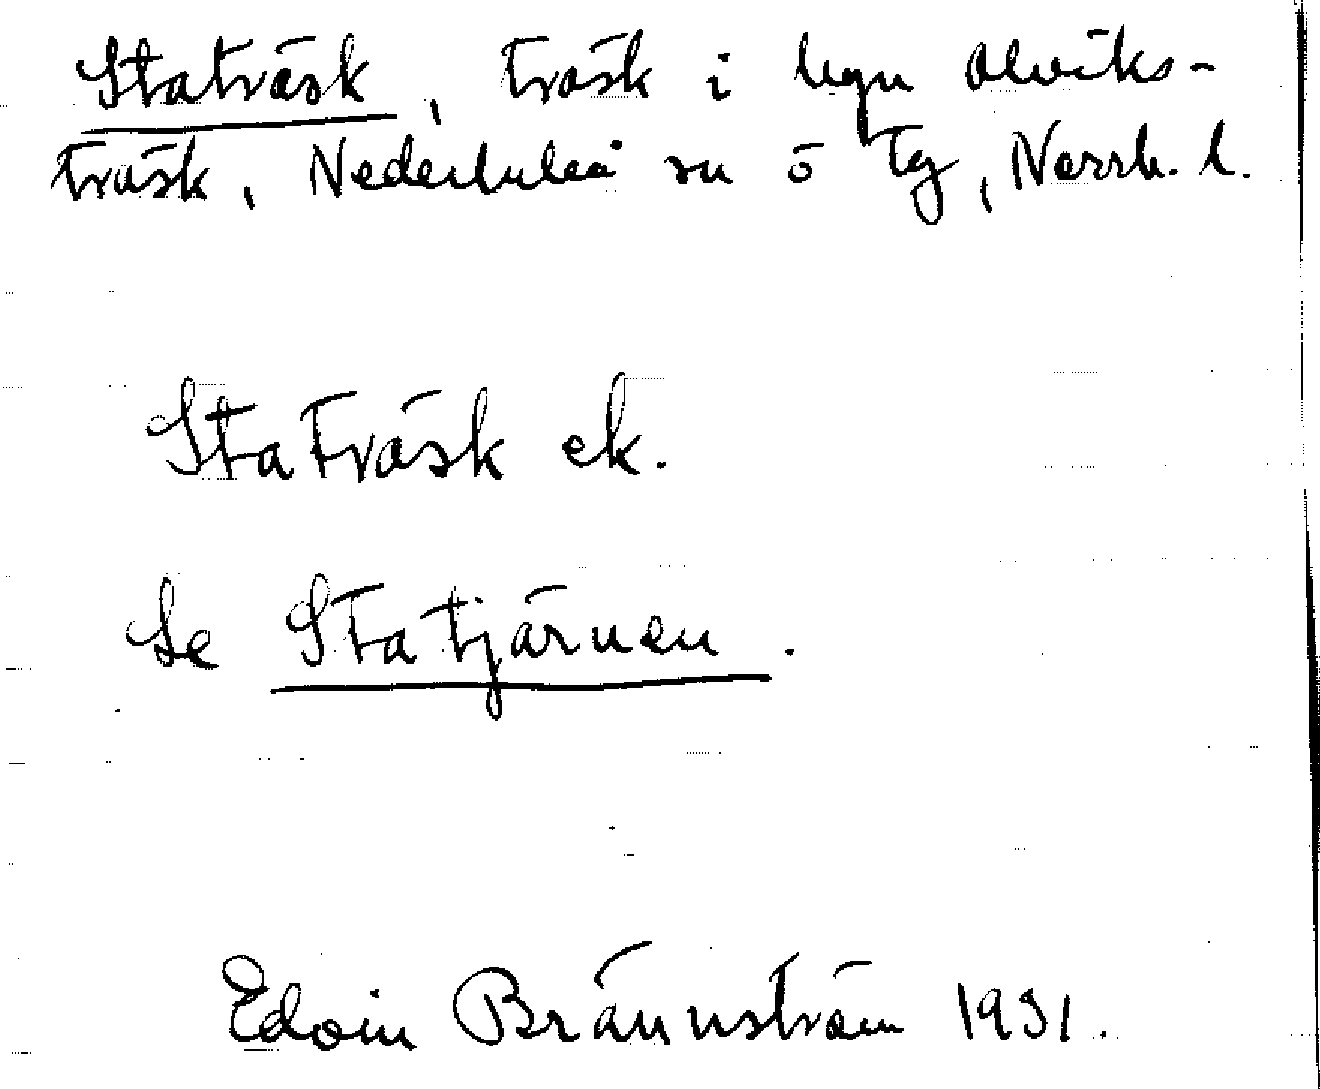 Staträsk, träsk i byn Alviks-
träsk, Nederluleå sn ö tg, Norrb. l.
Staträsk ek.
Se Statjärnen.
Edvin Brännström 1931.